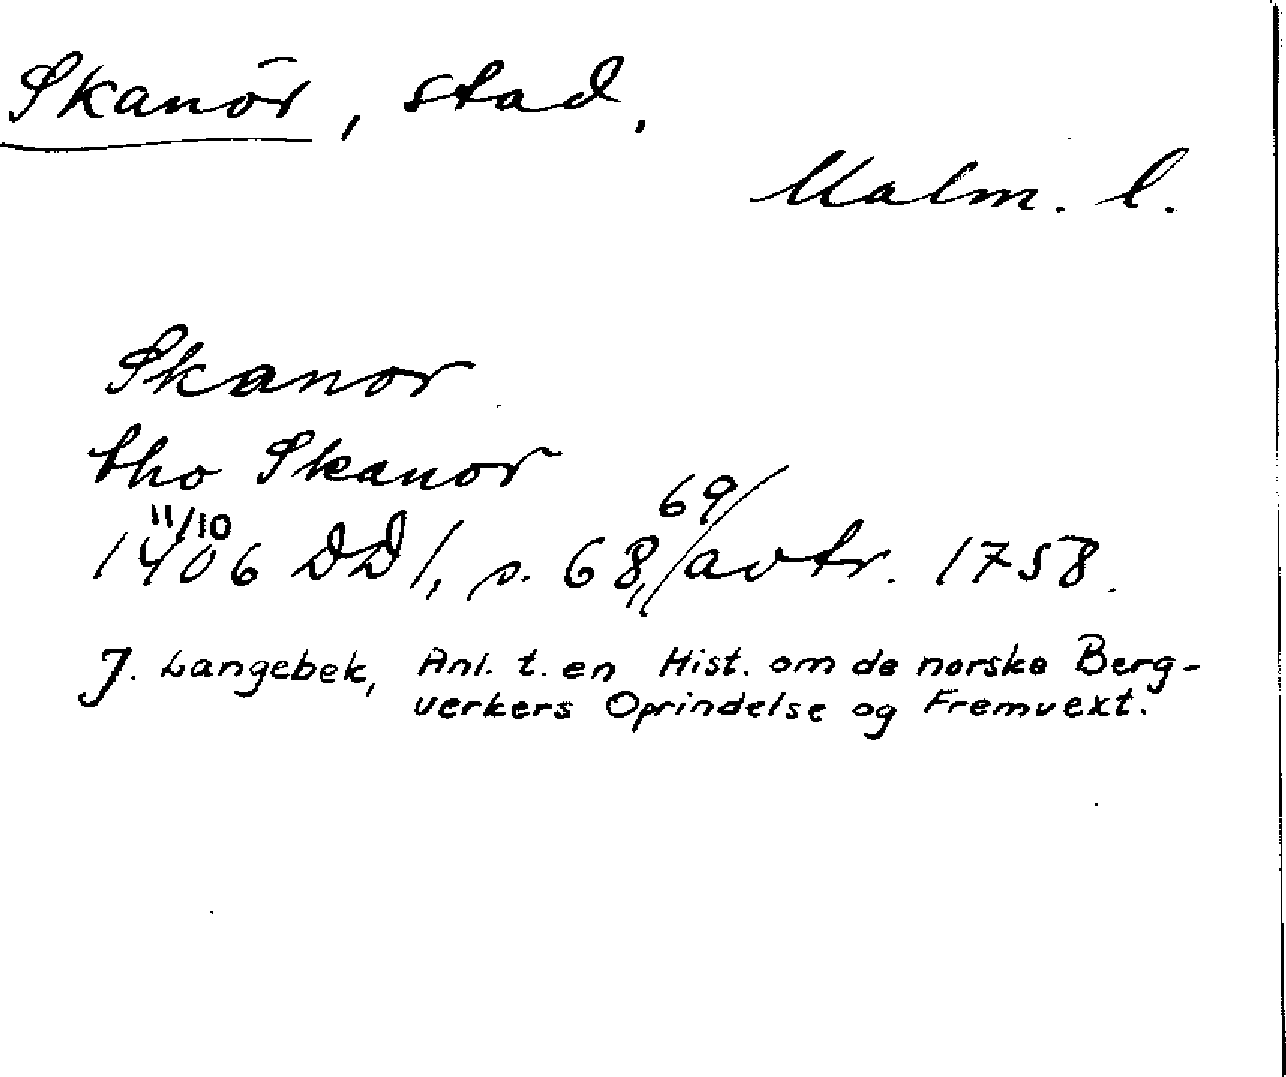 Skanör, stad.
Malm. l.
Skanor
tho Skanor
11/10
1406 DD 1, s. 68, 69/ avtr. 1758.
J. Langebek, Anl. t. en Hist. om de norske Berg-
verkers Oprindelse og Fremvext.